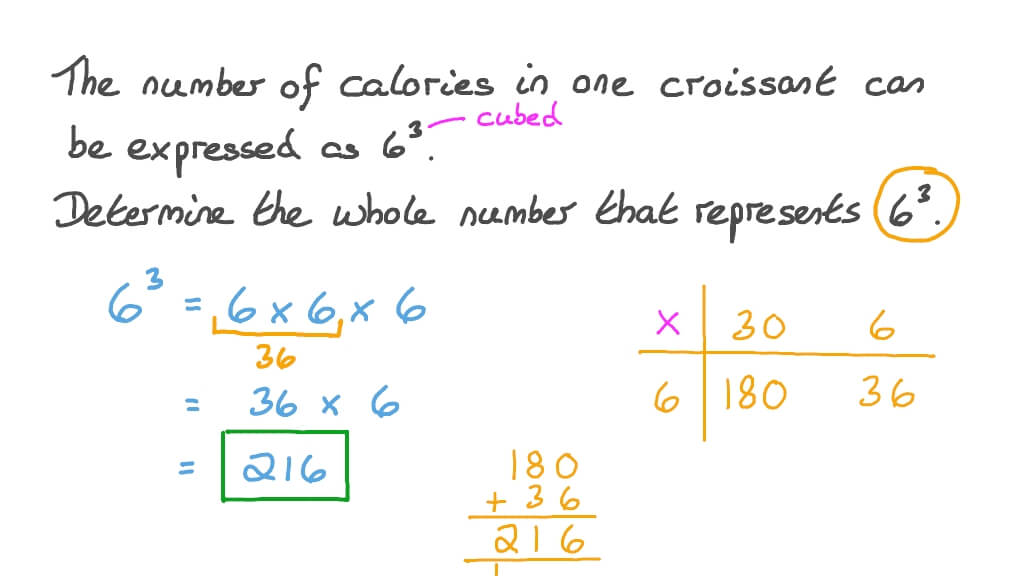 The number of calories in one croissant can
be expressed as 6³. cubed
Determine the whole number that represents 6³.
6³ = 6 × 6 × 6
36
= 36 × 6
= 216
× 30 6
6 180 36
180
+ 36
216
1